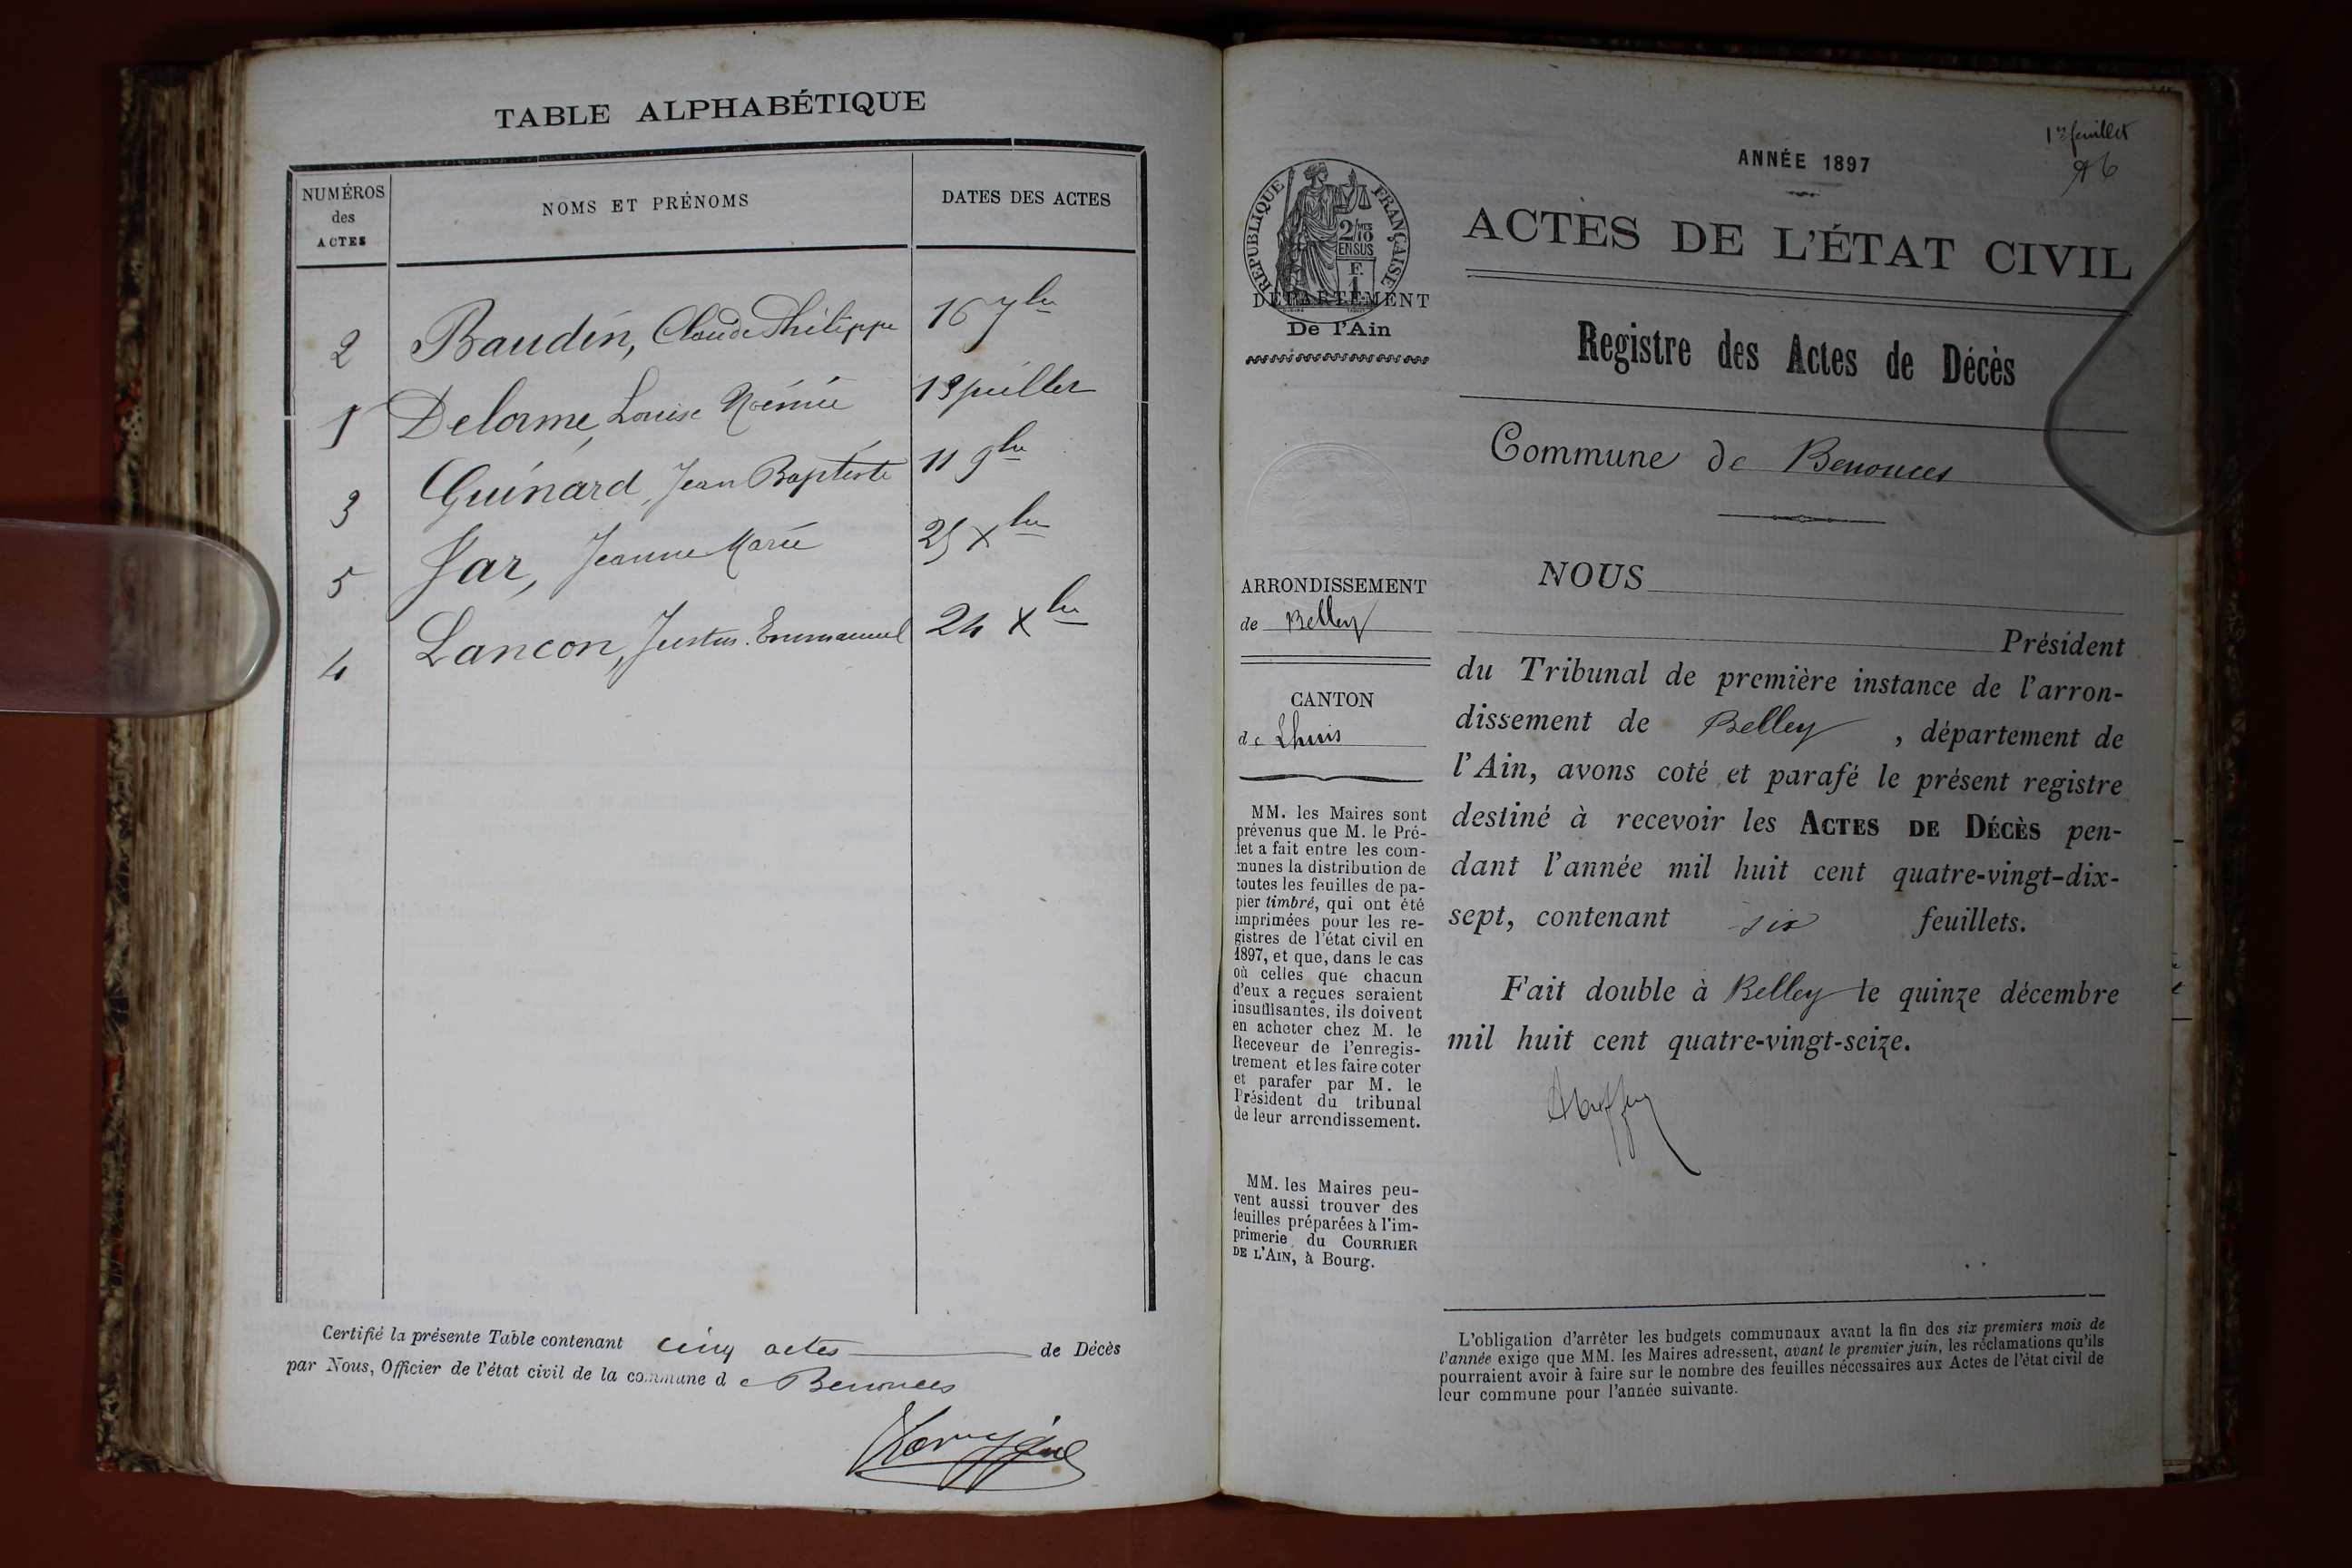 TABLE ALPHABÉTIQUE
NUMÉROS
des
ACTES
NOMS ET PRÉNOMS
DATES DES ACTES
2 Baudin, Claude Philippe 16 7bre
1 Delorme, Louise Noémie 19 juillet
3 Guinard, Jean Baptiste 11 9bre
5 Jar, Jeanne Marie 25 Xbre
4 Lancon, Justus Emmanuel 24 Xbre
Certifié la présente Table contenant cinq actes de Décès
par Nous, Officier de l'état civil de la commune de Benonces
1er feuillet
ANNÉE 1897
ACTES DE L'ÉTAT CIVIL
RÉPUBLIQUE FRANÇAISE
2/10
EN SUS
F.
1
DÉPARTEMENT
De l'Ain
Registre des Actes de Décès
Commune de Benonces
ARRONDISSEMENT
de Belley
CANTON
de Lhuis
MM. les Maires sont
prévenus que M. le Pré-
fet a fait entre les com-
munes la distribution de
toutes les feuilles de pa-
pier timbré, qui ont été
imprimées pour les re-
gistres de l'état civil en
1897, et que, dans le cas
où celles que chacun
d'eux a reçues seraient
insuffisantes, ils doivent
en acheter chez M. le
Receveur de l'enregis-
trement et les faire coter
et parafer par M. le
Président du tribunal
de leur arrondissement.
MM. les Maires peu-
vent aussi trouver des
feuilles préparées à l'im-
primerie du COURRIER
DE L'AIN, à Bourg.
NOUS
Président
du Tribunal de première instance de l'arron-
dissement de Belley, département de
l'Ain, avons coté et parafé le présent registre
destiné à recevoir les ACTES DE DÉCÈS pen-
dant l'année mil huit cent quatre-vingt-dix-
sept, contenant six feuillets.
Fait double à Belley le quinze décembre
mil huit cent quatre-vingt-seize.
L'obligation d'arrêter les budgets communaux avant la fin des six premiers mois de
l'année exige que MM. les Maires adressent, avant le premier juin, les réclamations qu'ils
pourraient avoir à faire sur le nombre des feuilles nécessaires aux Actes de l'état civil de
leur commune pour l'année suivante.